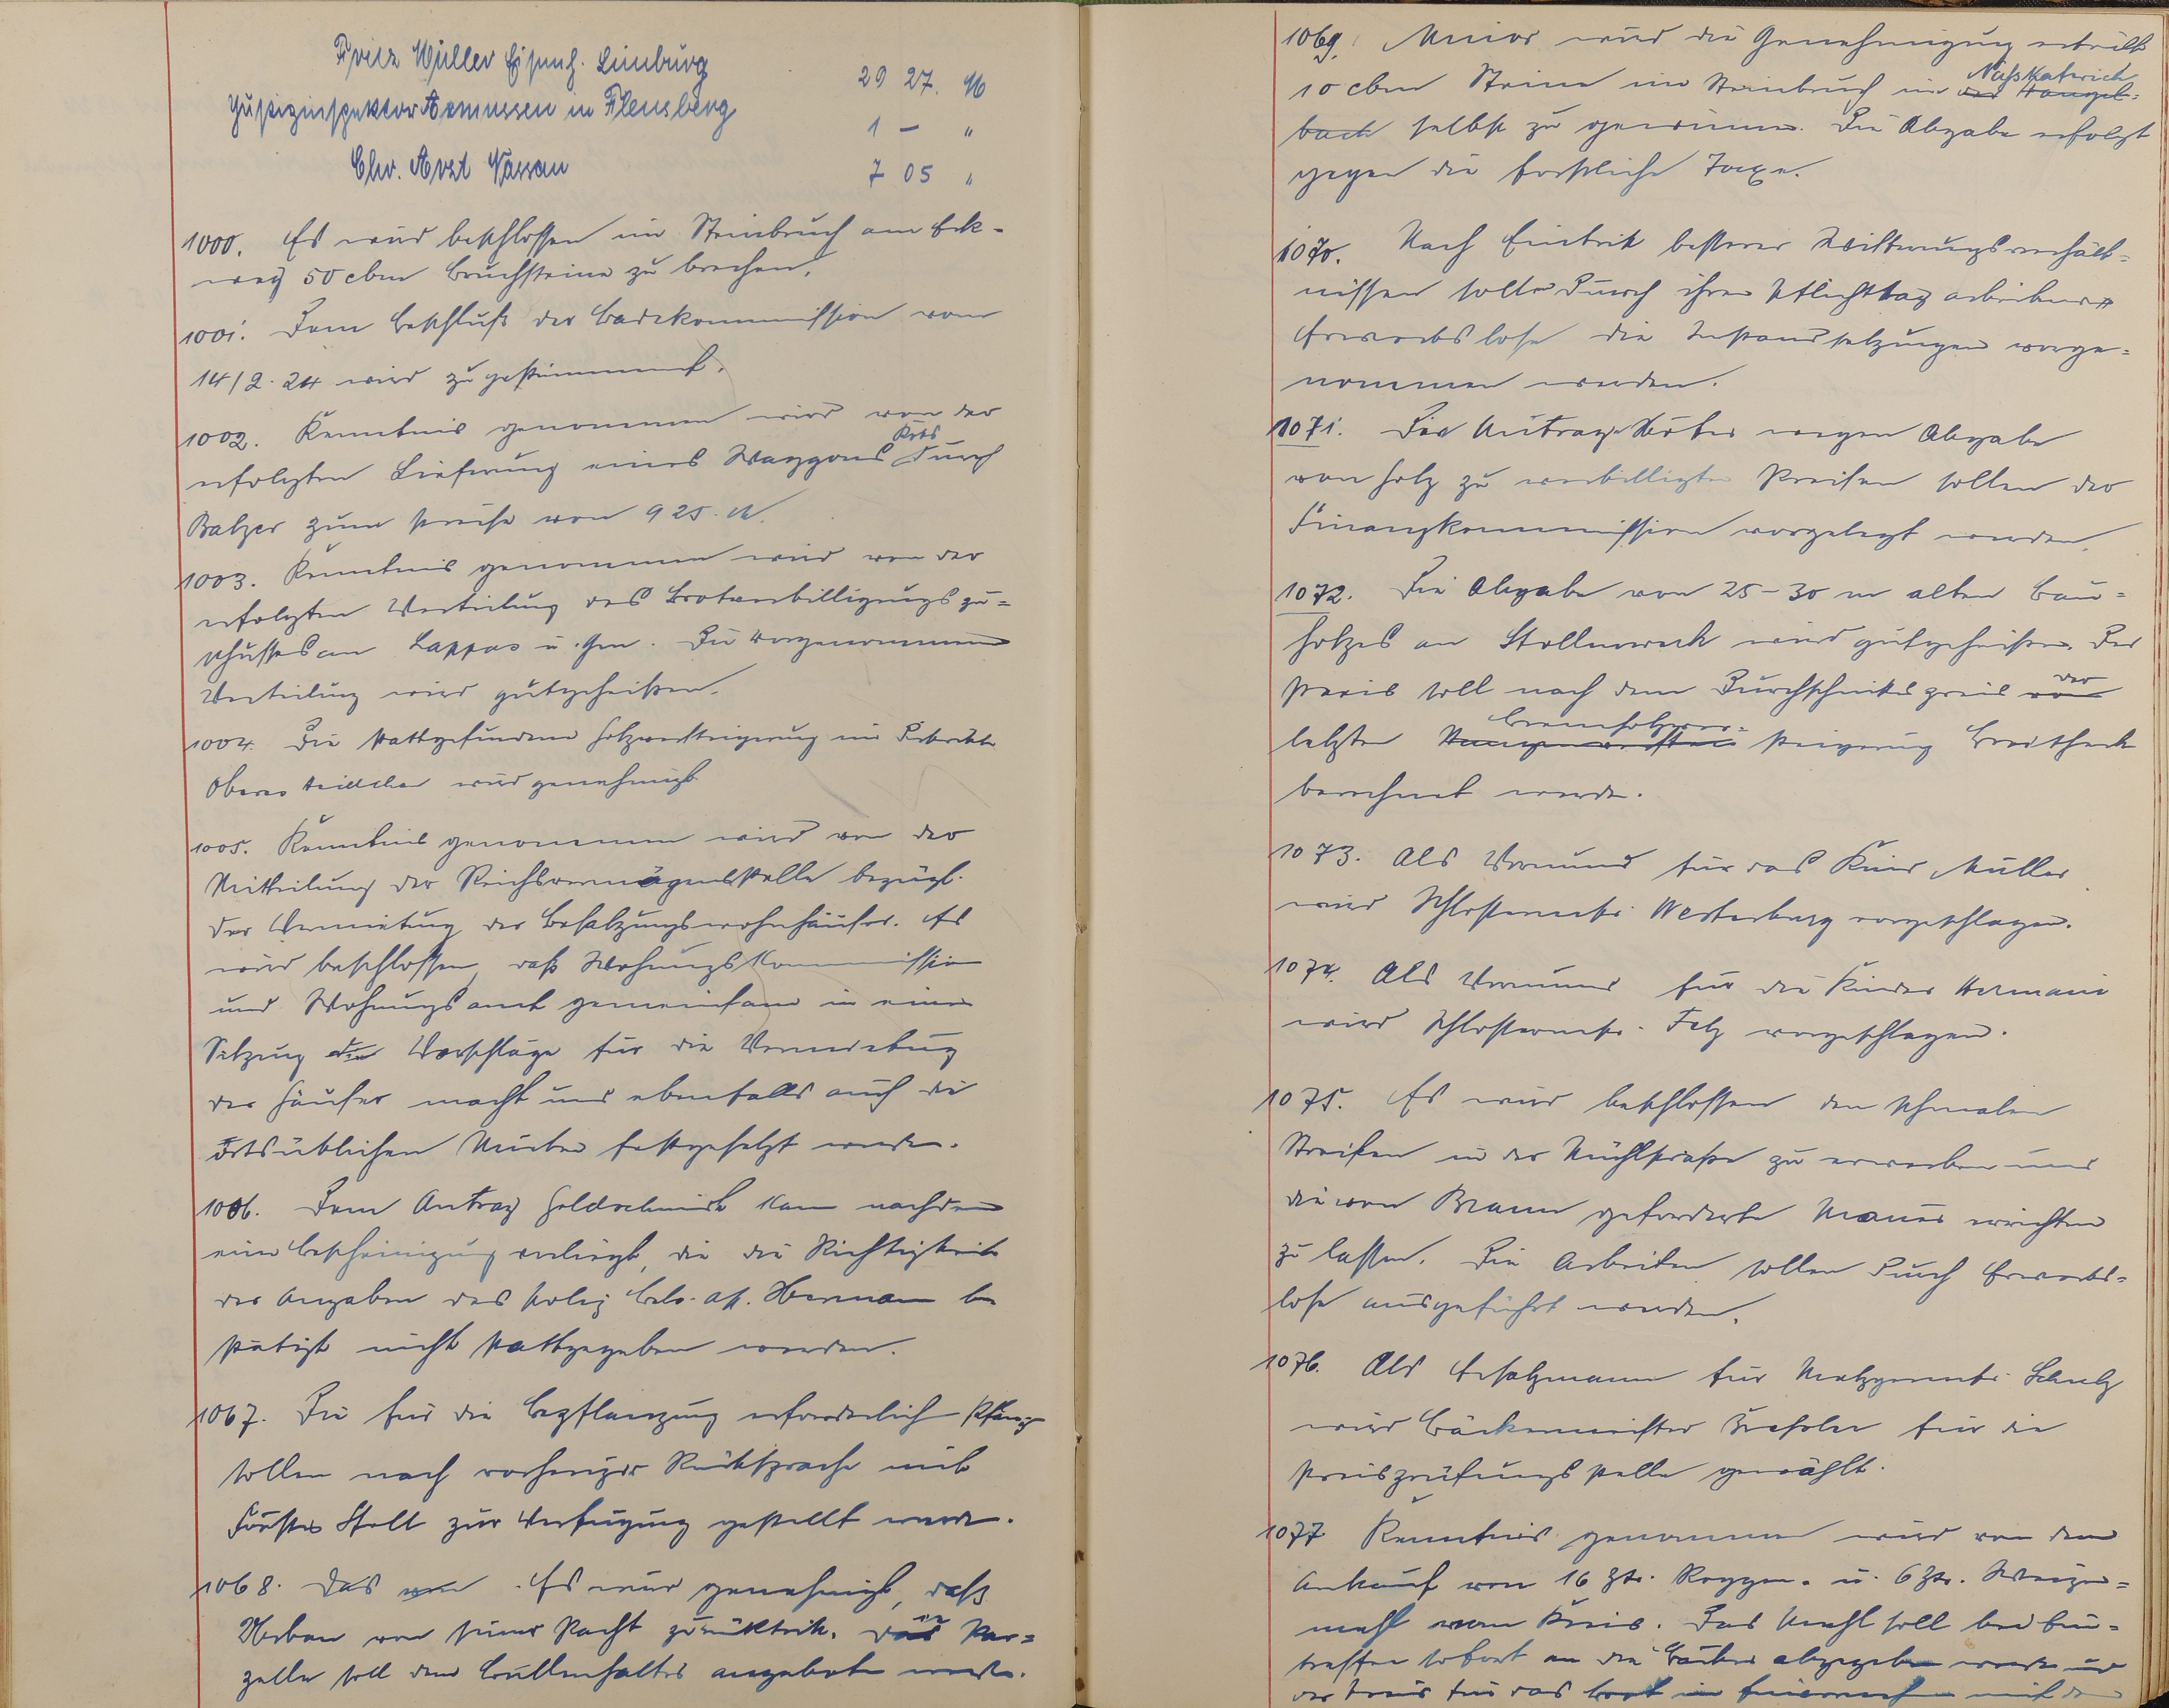 Fritz Müller Eisenh. Limburg 29 27. M
Justizinspektor Asmussen in Flensburg 1 – "
Chr. Arzt Nassau 7 05 "
1000. Es wird beschlossen im Steinbruch am Eck-
weg 50 cbm Bruchsteine zu brechen.
1001. Dem Beschluß der Badekommission vom
14/2. 24 wird zugestimmt.
1002. Kenntnis genommen wird von der
erfolgten Lieferung eines Waggons Koks durch
Balzer zum Preise von 925. M.
1003. Kenntnis genommen wird von der
erfolgten Verteilung des Brotverbilligungszu=
schusses an Lappas u. Gen. Die vorgenommene
Verteilung wird gutgeheißen.
1004. Die stattgefundene Holzversteigerung im Distrikt
Oberes wird genehmigt
1005. Kenntnis genommen wird von der
Mitteilung der Reichsvermögensstelle bezügl.
der Vermietung der Besatzungswohnhäuser. Es
wird beschlossen, daß Wohnungskommission
und Wohnungsamt gemeinsam in einer
Sitzung die Vorschläge für die Vermietung
der Häuser macht und ebenfalls auch die
ortsüblichen Mieten festgesetzt werden.
1006. Dem Antrag Goldschmidt kann nachdem
eine Bescheinigung vorliegt, die die Richtigkeit
der Angaben des Poliz. Betr. Ass. Hermann be
stätigt nicht stattgegeben werden.
1067. Die für die Bepflanzung erforderlich
sollen nach vorheriger Rücksprache mit
Förster Stoll zur Verfügung gestellt werden.
1068. Das von Es wird genehmigt, daß
Urban von seiner Pacht zurücktritt. Die Par=
zelle soll dem Bullenhalter angeboten werden.
1069. Minor wird die Genehmigung erteilt
10 cbm Steine im Steinbruch im Naßkaterich der Hangel=
bach selbst zu gewinnen. Die Abgabe erfolgt
gegen die forstliche Taxe.
1070. Nach Eintritt besserer Witterungsverhält=
nissen sollen durch ihren Pflichttag arbeitende
Erwerbslose die Instandsetzungen vorge=
nommen werden.
1071. Die Anträge Weber wegen Abgabe
von Holz zu verbilligten Preisen sollen der
Finanzkommission vorgelegt werden.
1072. Die Abgabe von 25-30 m alten Bau=
holzes an Stollenwerk wird gutgeheißen. Der
Preis soll nach dem Durchschnittspreis der von
letzten Brennholzver= steigerung Breitheck
berechnet werden.
1073. Als Vormund für das Kind Müller
wird Schlossermstr. Westerburg vorgeschlagen.
1074. Als Vormund für die Kinder Hermani
wird Schlossermstr. Felz vorgeschlagen.
1075. Es wird beschlossen den schmalen
Streifen in der Mühlstraße zu erwerben und
die von Braun geforderte Mauer errichten
zu lassen. Die Arbeiten sollen durch Erwerbs=
lose ausgeführt werden.
1076. Als Ersatzmann für Metzgermstr. Schulz
wird Bäckermeister für die
Preisprüfungsstelle gewählt.
1077 Kenntnis genommen wird von dem
Ankauf von 16 Ztr. Roggen- u. 6 Ztr. Weizen=
mehl vom Kreis. Das Mehl soll bei Ein=
treffen sofort an die Bäcker abgegeben werden und
der Preis für das Brot